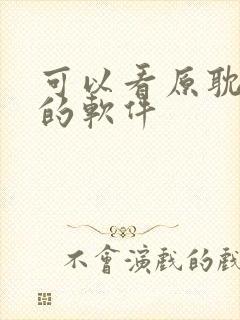 可以看原耽
的軟件
不會演戲的戲